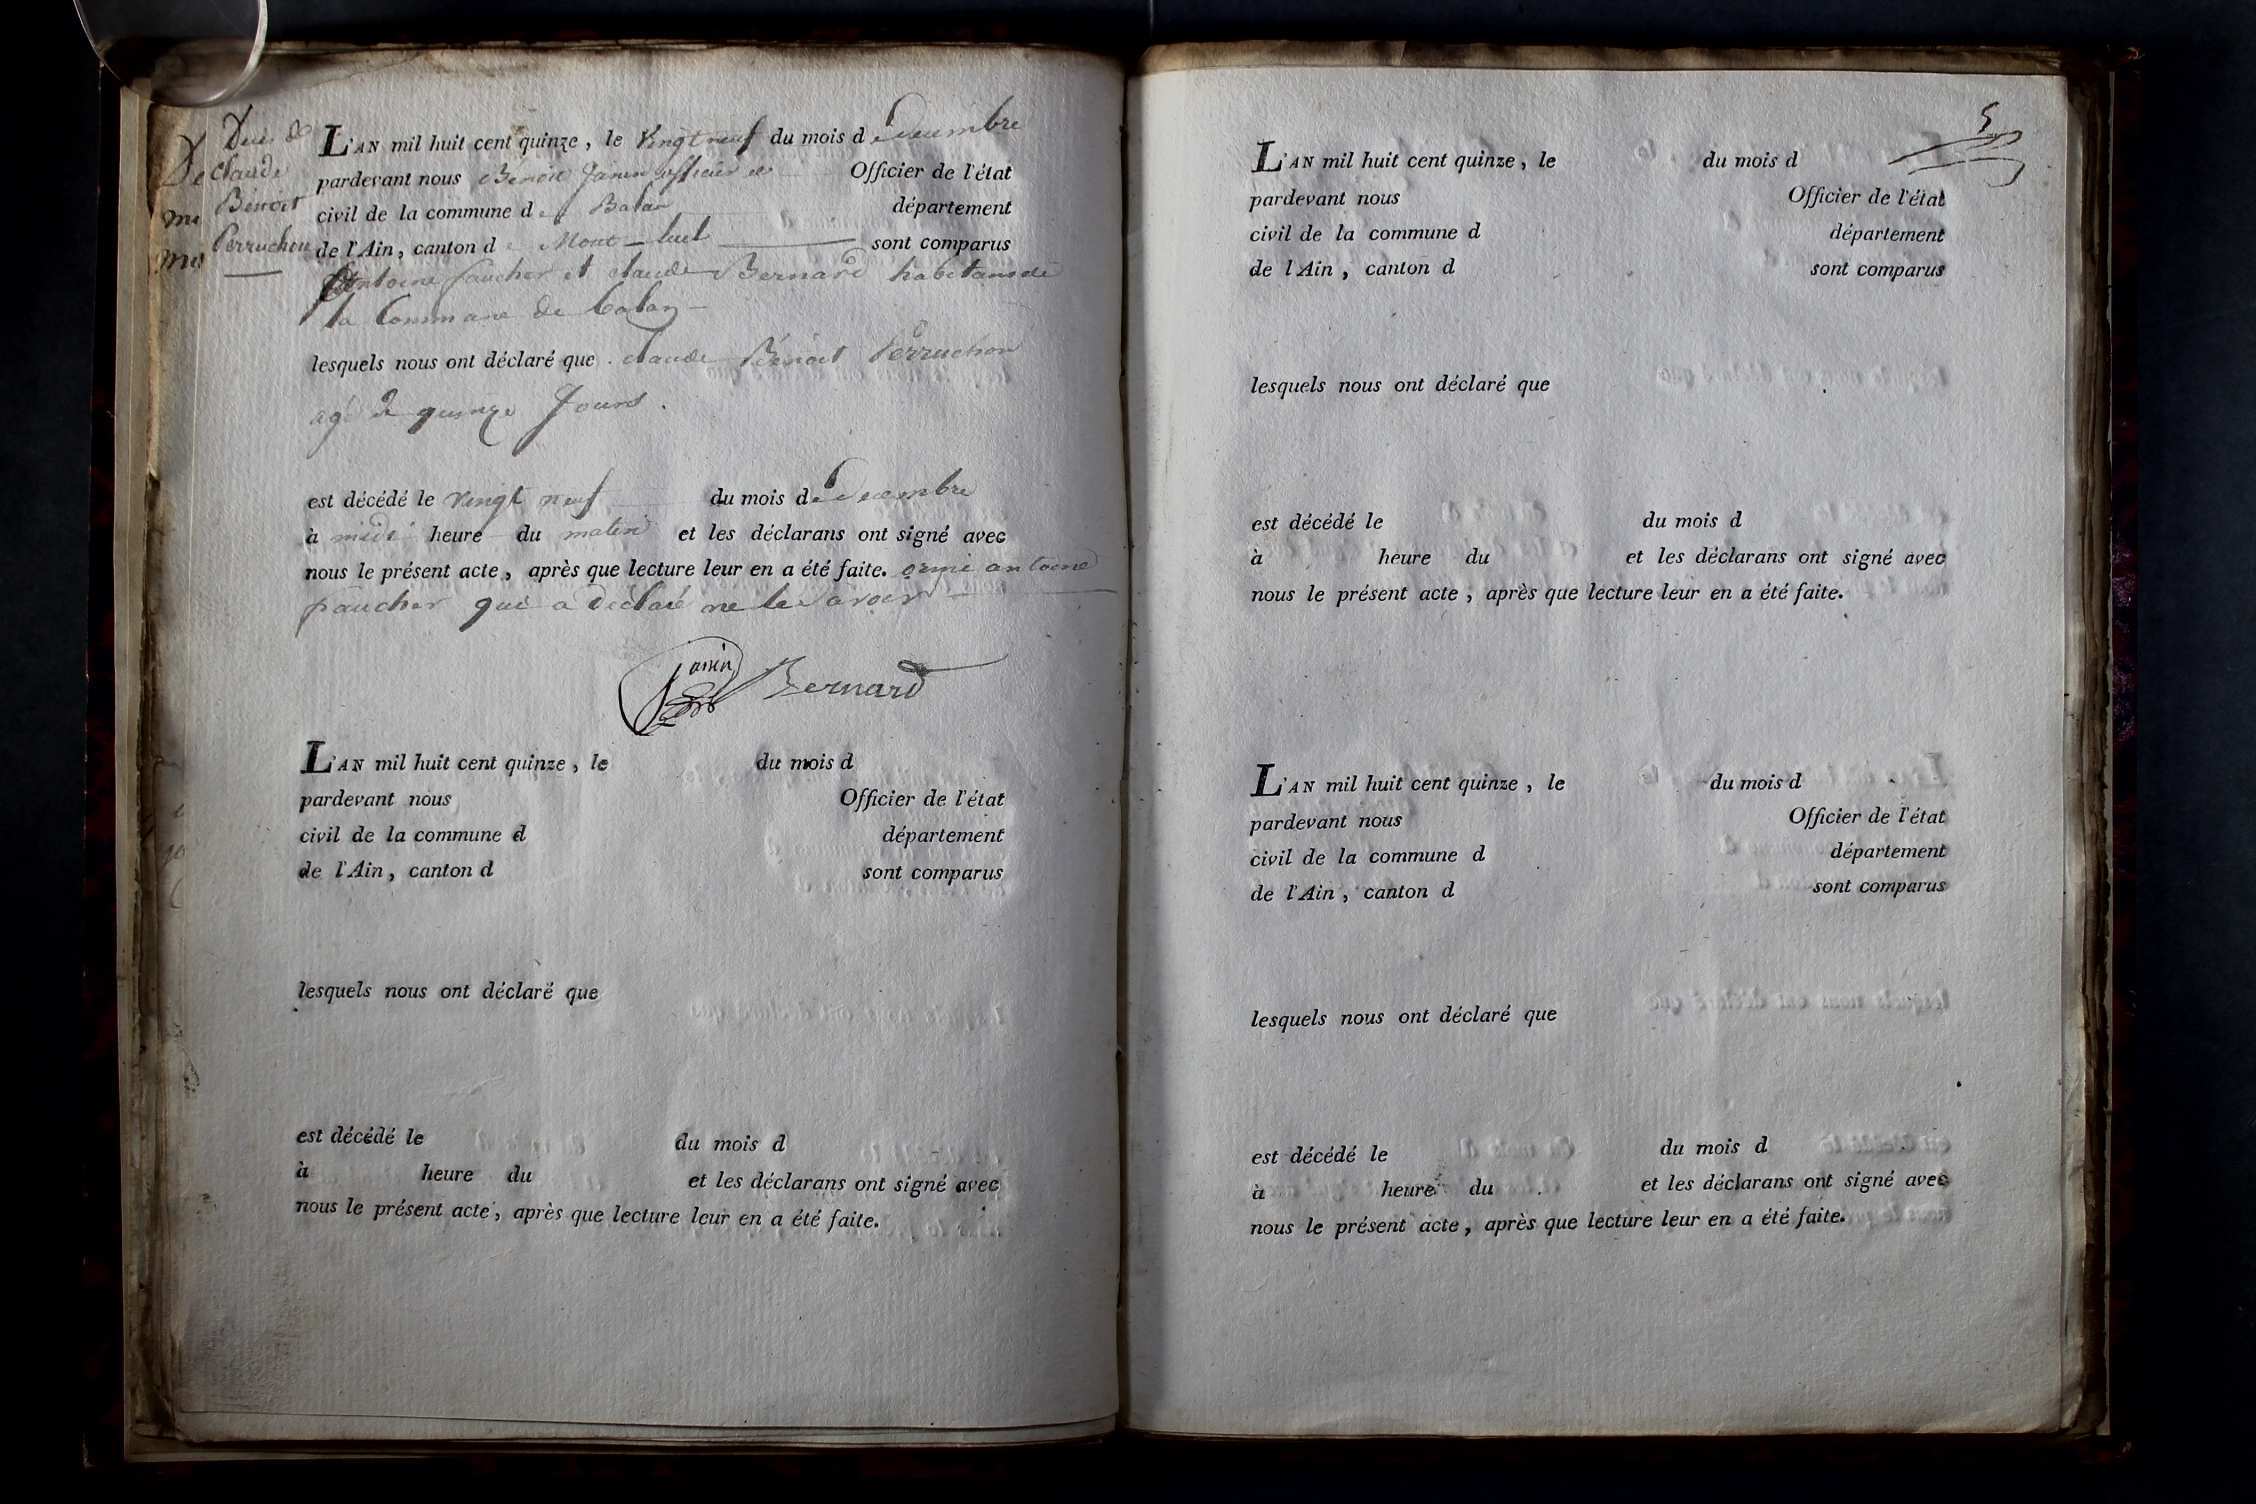 Deces de
claude
Bénoit
Perruchon
L'AN mil huit cent quinze, le vingt neuf du mois de decembre
pardevant nous Benoit Janin officier de Officier de l'état
civil de la commune de Balan département
de l'Ain, canton de Mont-luel sont comparus
Antoine faucher et claude Bernard habitans de
la Commune de balan
lesquels nous ont déclaré que claude Bénoit Perruchon
agé de quinze Jours.
est décédé le vingt neuf du mois de decembre
à midi heure du matin et les déclarans ont signé avec
nous le présent acte, après que lecture leur en a été faite. ormi antoine
faucher qui a déclaré ne le savoir
Janin Bernard
L'AN mil huit cent quinze, le du mois d
pardevant nous Officier de l'état
civil de la commune d département
de l'Ain, canton d sont comparus
lesquels nous ont déclaré que
est décédé le du mois d
à heure du et les déclarans ont signé avec
nous le présent acte, après que lecture leur en a été faite.
5
L'AN mil huit cent quinze, le du mois d
pardevant nous Officier de l'état
civil de la commune d département
de l'Ain, canton d sont comparus
lesquels nous ont déclaré que
est décédé le du mois d
à heure du et les déclarans ont signé avec
nous le présent acte, après que lecture leur en a été faite.
L'AN mil huit cent quinze, le du mois d
pardevant nous Officier de l'état
civil de la commune d département
de l'Ain, canton d sont comparus
lesquels nous ont déclaré que
est décédé le du mois d
à heure du et les déclarans ont signé avec
nous le présent acte, après que lecture leur en a été faite.